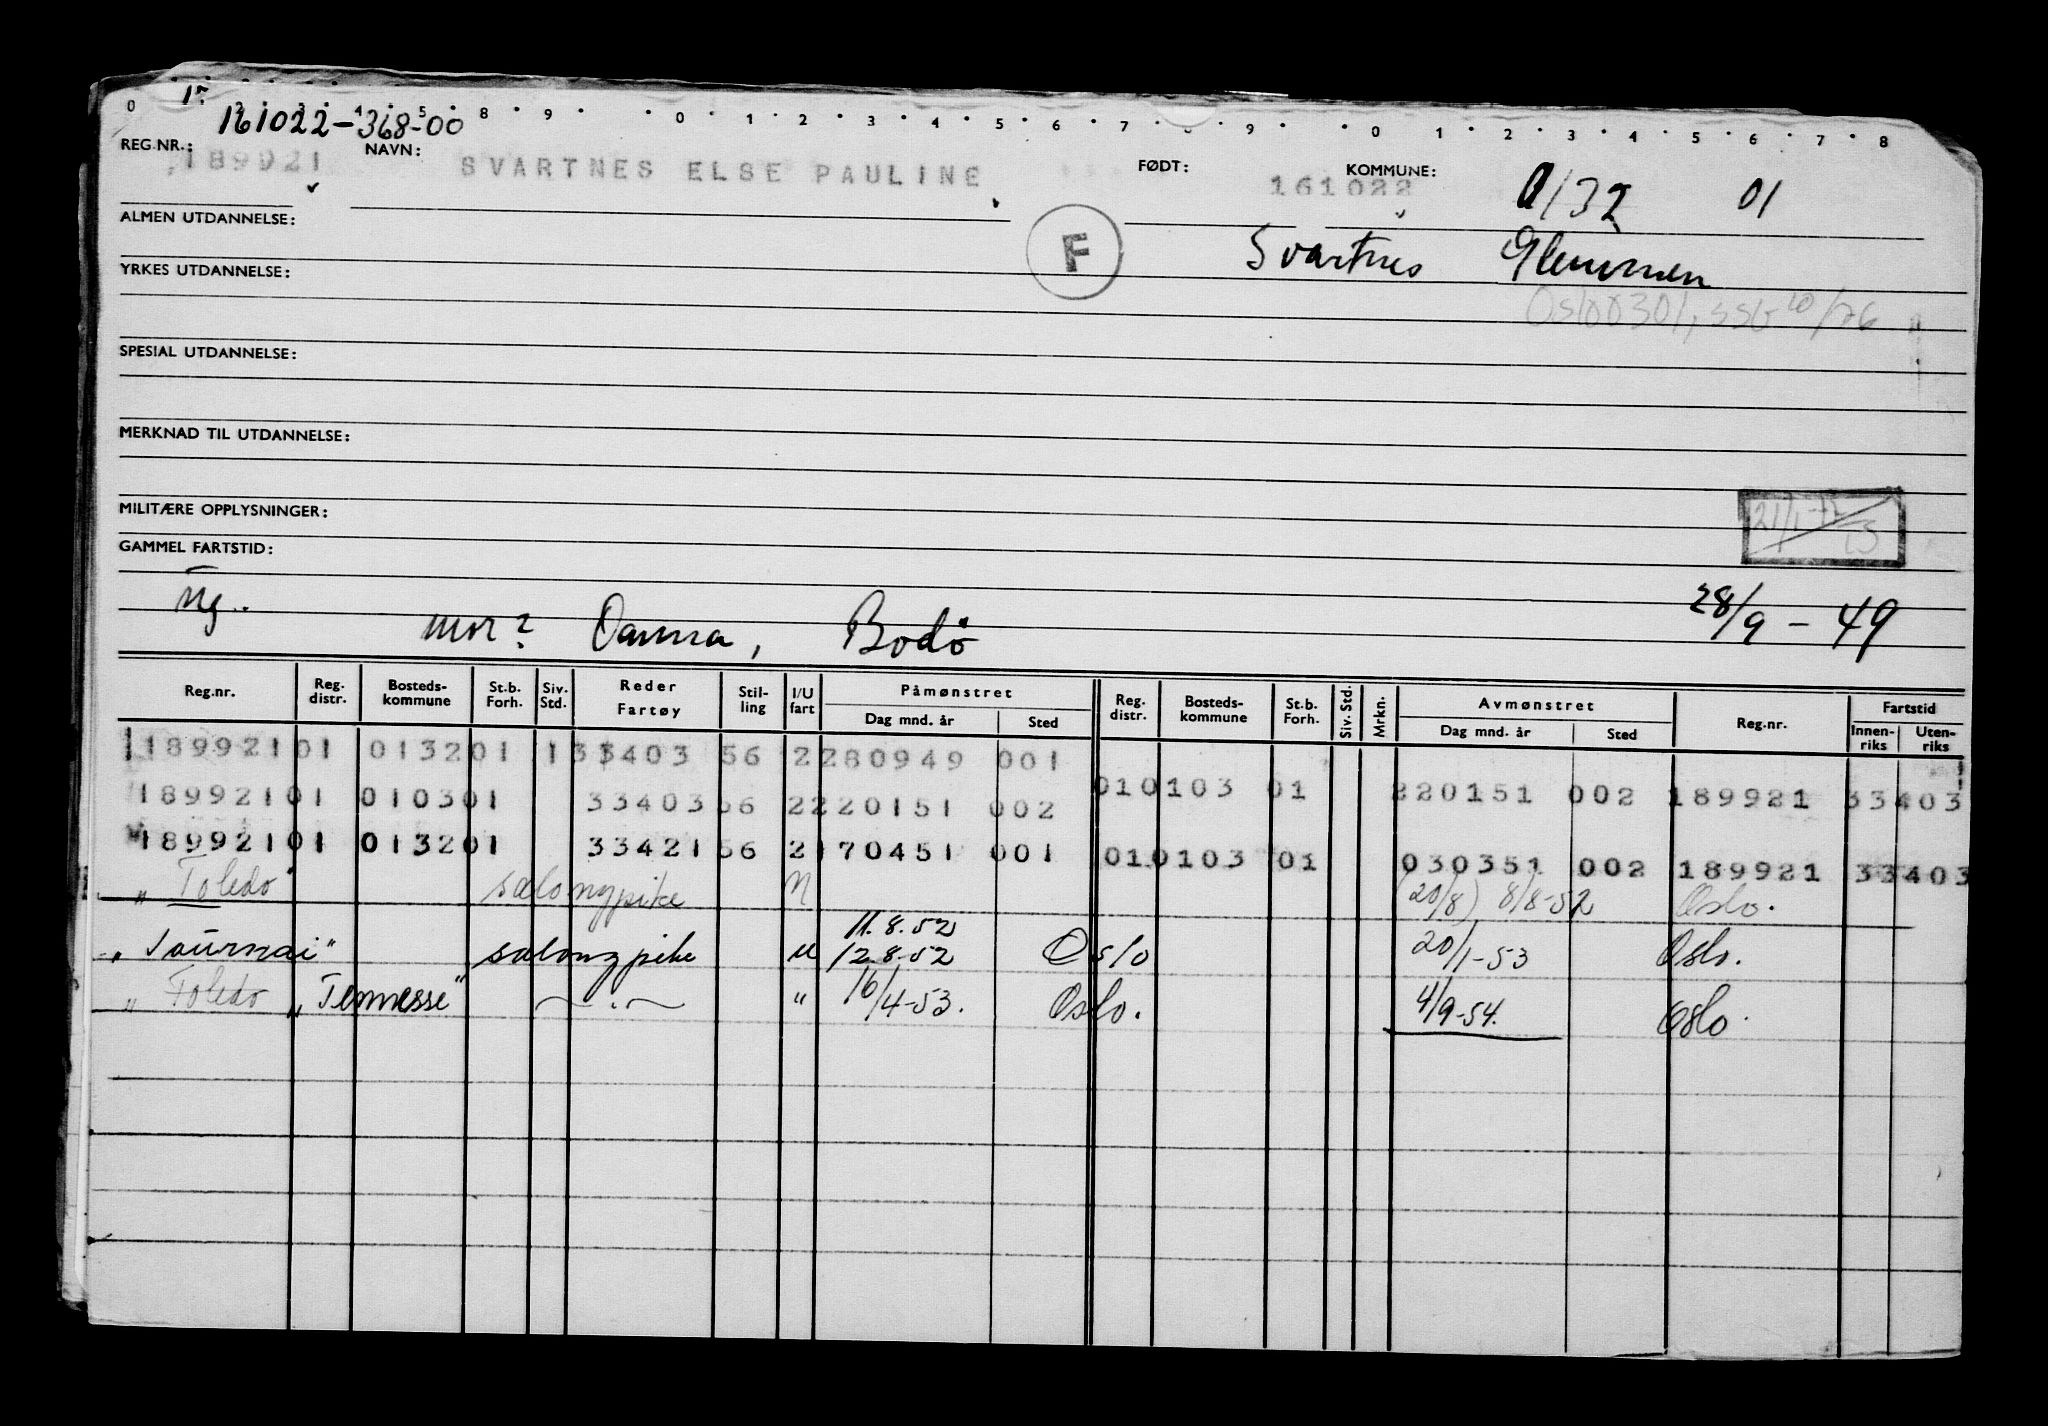 161022-368-00
REG.NR.: 189921 NAVN: SVARTNES ELSE PAULINE FØDT: 161022 KOMMUNE: 0132 01
ALMEN UTDANNELSE: F Svartnes Glemmen
YRKES UTDANNELSE:
Oslo 0301, SSB 10/76
SPESIAL UTDANNELSE:
MERKNAD TIL UTDANNELSE:
MILITÆRE OPPLYSNINGER:
GAMMEL FARTSTID:
Ug.. 28/9-49
mor? Danna, Bodö
Reg.nr. Reg. distr. Bosteds-kommune St.b. Forh. Siv. Std. Reder Fartøy Stil-ling I/U fart Påmønstret Dag mnd. år Sted Reg. distr. Bosteds-kommune St.b. Forh. Siv. Std. Mrkn. Avmønstret Dag mnd. år Sted Reg.nr. Fartstid Innen-riks Uten-riks
189921 01 0132 01 1 33403 56 2 280949 001
189921 01 0103 01 33403 56 2 220151 002 01 0103 01 220151 002 189921 33403
189921 01 0132 01 33421 56 2 170451 001 01 0103 01 030351 002 189921 33403
" Toledo salongpike (20/8) 8/8-52 Oslo.
11.8.52
"Tournai" salongpike u 12.8.52 Oslo 20/1-53 Oslo.
" Toledo "Tennesse" — . — " 16/4-53. Oslo. 4/9-54. Oslo.